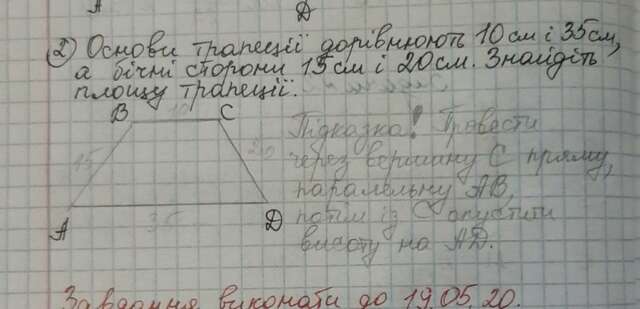 А
D
2) Основи трапеції дорівнюють 10 см і 35 см,
а бічні сторони 15 см і 20 см. Знайдіть
площу трапеції.
B 10 C
Підказка! Провести
15 20 через вершину C пряму,
паралельну AB,
A 35 D потім із C опустити
висоту на AD.
Завдання виконати до 19.05.20.